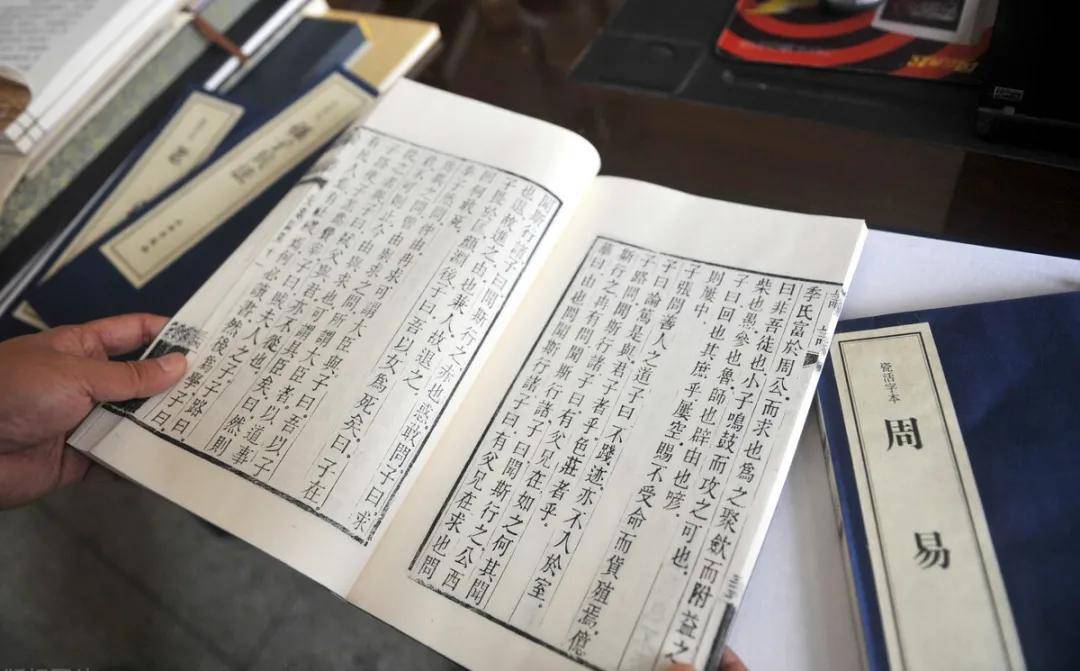 季氏富於周公.而求也為之聚斂而附益之.
曰.非吾徒也.小子鳴鼓而攻之.可也.
柴也愚.參也魯.師也辟.由也喭.
子曰.回也其庶乎.屢空.賜不受命.而貨殖焉.億
則屢中.
子張問善人之道.子曰.不踐迹.亦不入於室.
子曰.論篤是與.君子者乎.色莊者乎.
子路問.聞斯行諸.子曰.有父兄在.如之何其聞
斯行之.冉有問.聞斯行諸.子曰.聞斯行之.公西
華曰.由也問聞斯行諸.子曰.有父兄在.求也問
聞斯行諸.子曰.聞斯行之.赤也惑.敢問.子曰.求
也退.故進之.由也兼人.故退之.
子畏於匡.顏淵後.子曰.吾以女為死矣.曰.子在.
回何敢死.
季子然問.仲由冉求.可謂大臣與.子曰.吾以子
為異之問.曾由與求之問.所謂大臣者.以道事
君.不可則止.今由與求也.可謂具臣矣.曰.然則
從之者與.子曰.弒父與君.亦不從也.
子路使子羔為費宰.子曰.賊夫人之子.子路曰.
有民人焉.有社稷焉.何必讀書.然後為學.子曰.
瓷活字本
周易
易